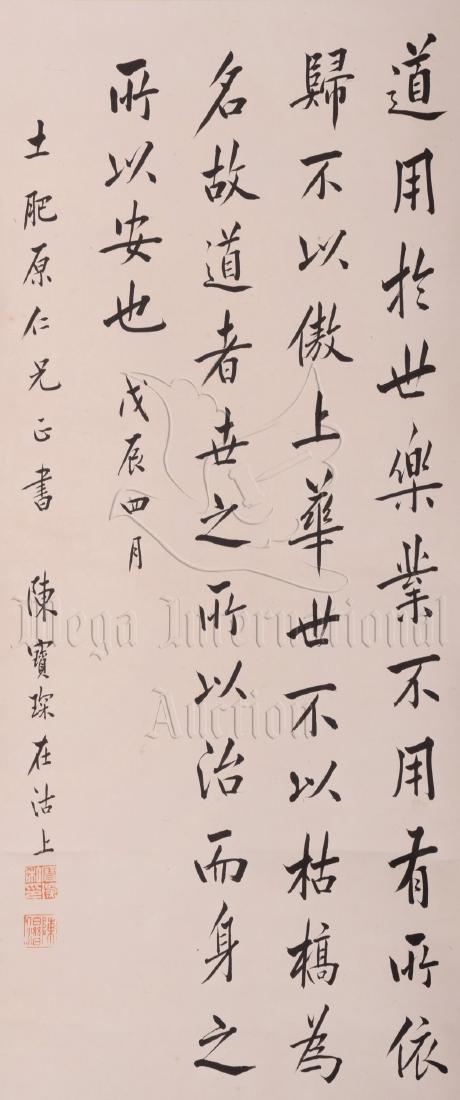 道用於世樂業不用有所依
歸不以傲上華世不以枯槁為
名故道者世之所以治而身之
所以安也 戊辰四月
土肥原仁兄正書 陳寶琛在沽上
Mega International
Auction